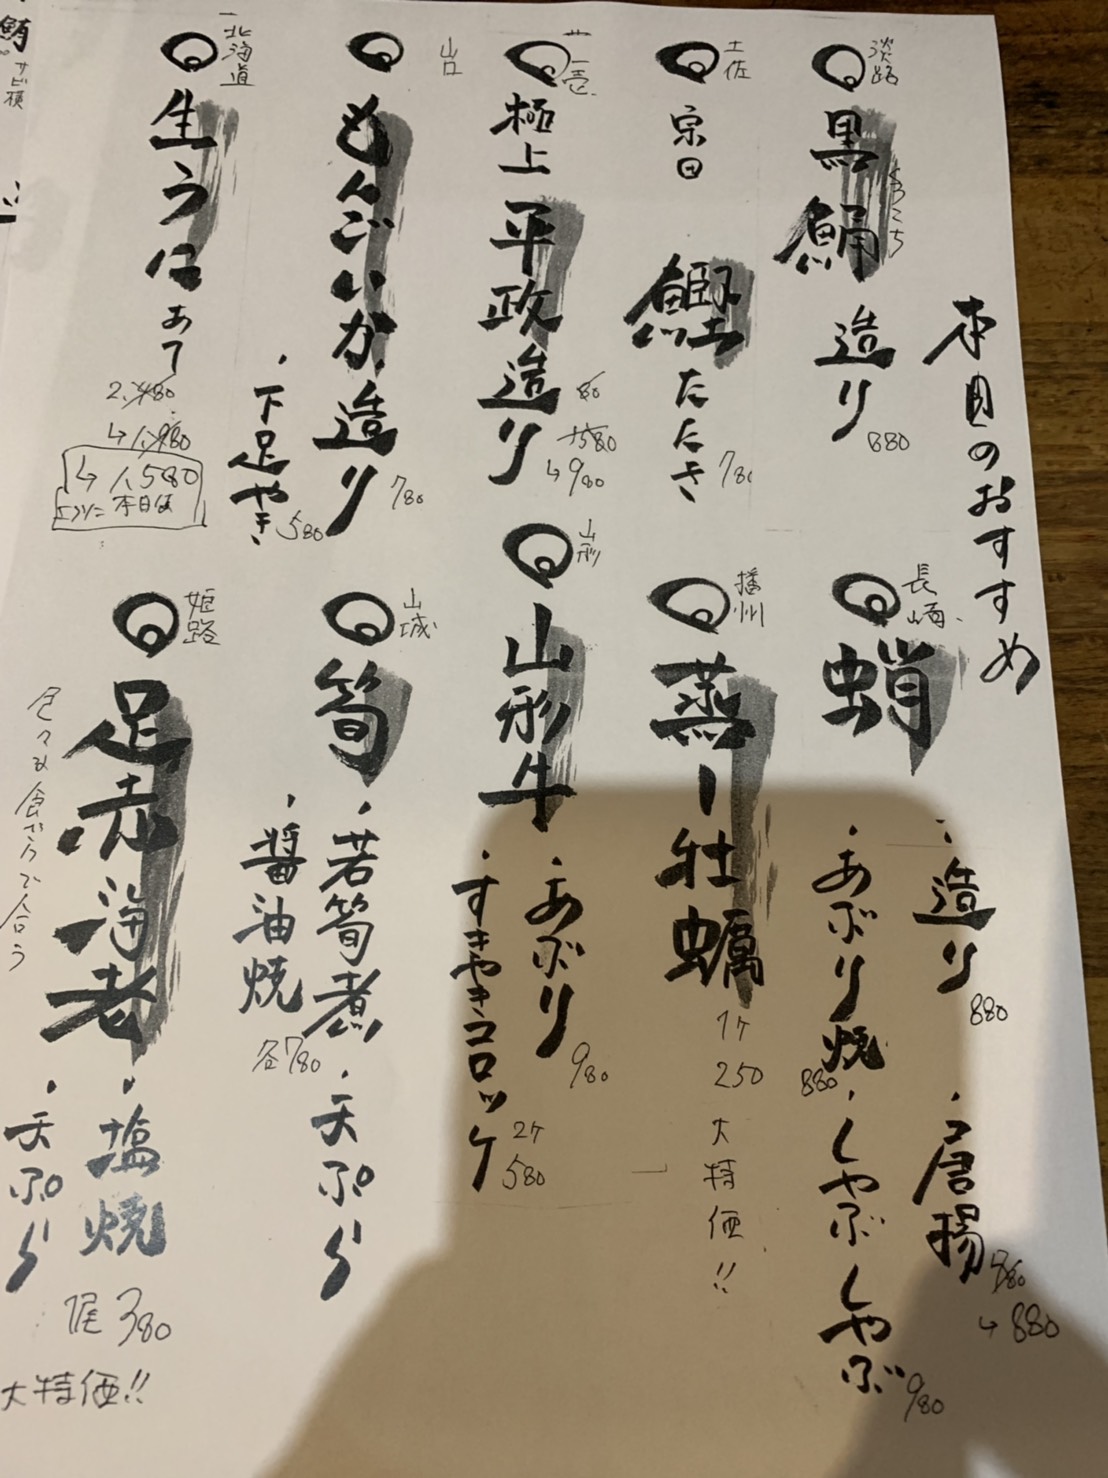 本日のおすすめ
淡路
黒鯒 造り
くろこち
880
土佐
宗田
鰹 たたき
780
壱
極上
平政 造り
980
山口
もんごいか 造り
780
・下足やき
580
北海道
生うに
あて
2,480
↳1,980
↳1,580
本日は
長崎
蛸
・造り
880
・唐揚
980
↳880
・あぶり焼
880
・しゃぶしゃぶ
980
播州
蒸し牡蠣
1ヶ
250
大特価!!
山形
山形牛
・あぶり
980
・すきやきコロッケ
2ケ
580
山城
筍
・若筍煮
・天ぷら
・醤油焼
各780
姫路
足赤海老
・塩焼
・天ぷら
380
大特価!!